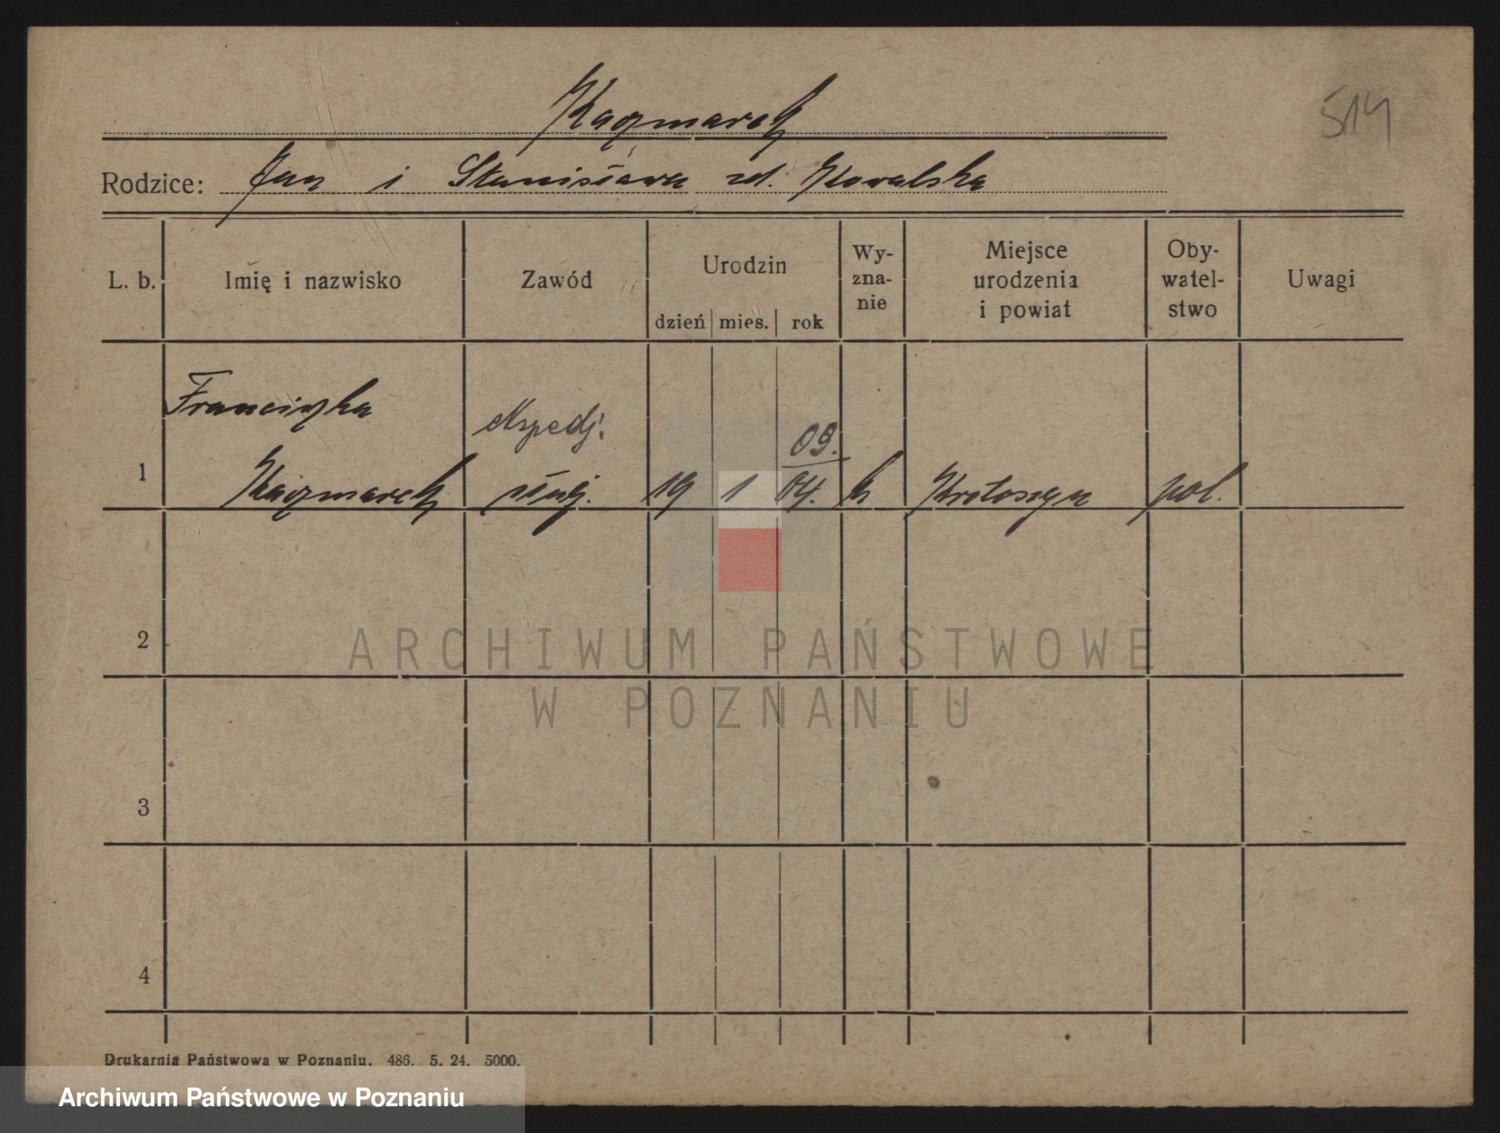 514
Kaczmarek
Rodzice: Jan i Stanisława zd. Kowalska
L. b.
Imię i nazwisko
Zawód
Urodzin
dzień mies. rok
Wy-
zna-
nie
Miejsce
urodzenia
i powiat
Oby-
watel-
stwo
Uwagi
Franciszka
ekspedj.
09.
1 Kaczmarek służ. 19 1 04. k Krotoszyn pol.
2
3
4
ARCHIWUM PAŃSTWOWE
W POZNANIU
Drukarnia Państwowa w Poznaniu. 486. 5. 24. 5000.
Archiwum Państwowe w Poznaniu